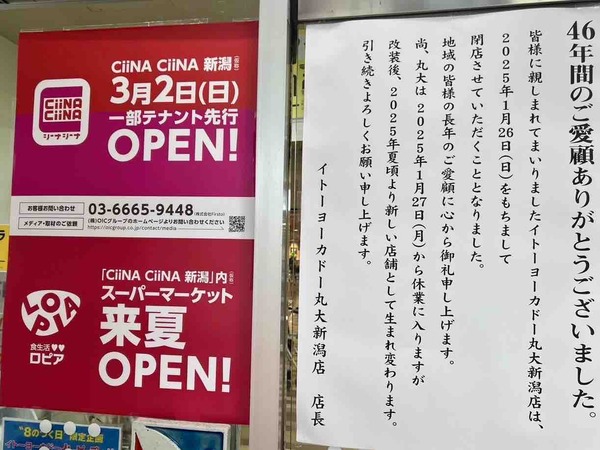 CiiNA CiiNA 新潟(仮称)
3月2日(日)
一部テナント先行
OPEN!
CiiNA
CiiNA
シーナシーナ
お客様お問い合わせ
03-6665-9448
メディア・取材のご依頼
(株)OICグループのホームページよりお問い合わせください
https://oicgroup.co.jp/contact/media
「CiiNA CiiNA 新潟」内(仮称)
スーパーマーケット
来夏
OPEN!
LOPIA
食生活♥♥
ロピア
"8のつく日"限定企画
46年間のご愛顧ありがとうございました。
皆様に親しまれてまいりましたイトーヨーカドー丸大新潟店は、
2025年1月26日(日)をもちまして
閉店させていただくこととなりました。
地域の皆様の長年のご愛顧に心から御礼申し上げます。
尚、丸大は2025年1月27日(月)から休業に入りますが
改装後、2025年夏頃より新しい店舗として生まれ変わります。
引き続きよろしくお願い申し上げます。
イトーヨーカドー丸大新潟店 店長